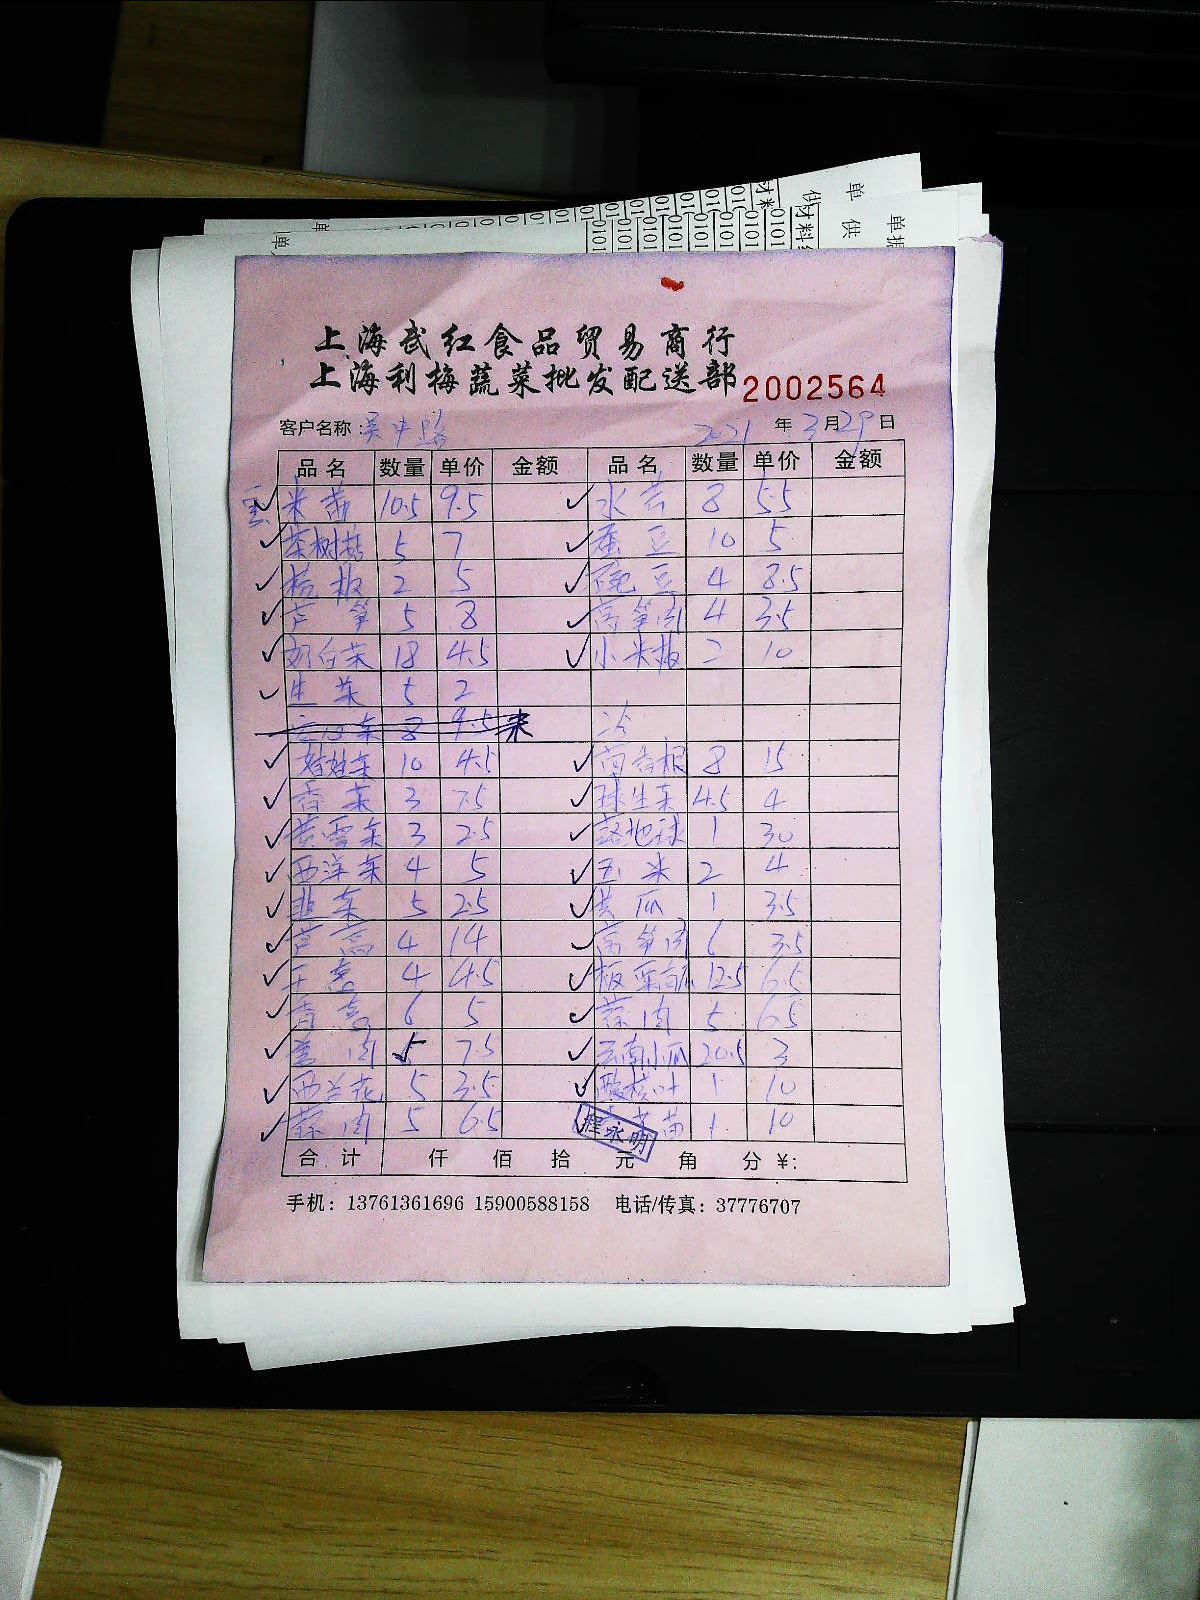 上海武红食品贸易商行
上海利梅蔬菜批发配送部 2002564
客户名称: 吴中路 2021 年 3 月 29 日
品名 数量 单价 金额 品名 数量 单价 金额
米苋 10.5 9.5 水芹 8 5.5
茶树菇 5 7 蚕豆 10 5
2 5 豌豆 4 8.5
芦笋 5 8 莴笋肉 4 3.5
奶白菜 18 4.5 小米椒 2 10
生菜 5 2
空心菜 8 9.5 未
娃娃菜 10 4.5 茴香根 8 15
香菜 3 7.5 球生菜 4.5 4
3 2.5 1 30
西洋菜 4 5 玉米 2 4
韭菜 5 2.5 黄瓜 1 3.5
4 14 莴笋肉 6 3.5
4 4.5 12.5 6.5
6 5 蒜肉 5 6.5
姜肉 5 7.5 云南小瓜 20.5 3
西兰花 5 3.5 1 10
蒜肉 5 6.5 苗 1 10
程永明
合计 仟 佰 拾 元 角 分 ¥:
手机: 13761361696 15900588158 电话/传真: 37776707